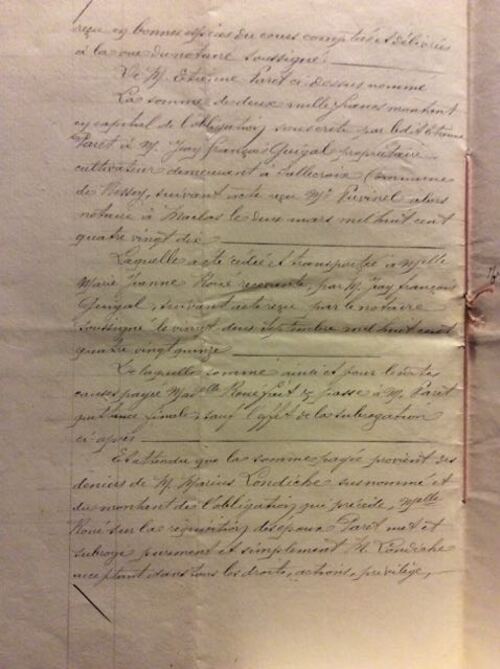 reçu en bonnes espèces du cours comptées et délivrées
à la vue du notaire soussigné.
De M. Etienne Paret ci-dessus nommé
La somme de deux mille francs montant
en capital de l'obligation souscrite par ledit Etienne
Paret à M. Jean François Guigal propriétaire
cultivateur demeurant à commune
de suivant acte reçu Me alors
notaire à Maclas le deux mars mil huit cent
quatre vingt dix
Laquelle a été cédée et transportée à Melle
Marie Jeanne Roué par M. Jean François
Guigal, suivant acte reçu par le notaire
soussigné le vingt deux septembre mil huit cent
quatre vingt quinze
De laquelle somme ainsi et pour les dites
causes payée Mademelle Roué fait & passe à M. Paret
quittance finale, sauf l'effet de la subrogation
ci-après
Et attendu que la somme payée provient des
deniers de M. Marius Londiche susnommé et
du montant de l'obligation qui précède, Melle
Roué sur la réquisition des époux Paret met et
subroge purement et simplement M. Londiche
acceptant dans tous les droits, actions, privilège,